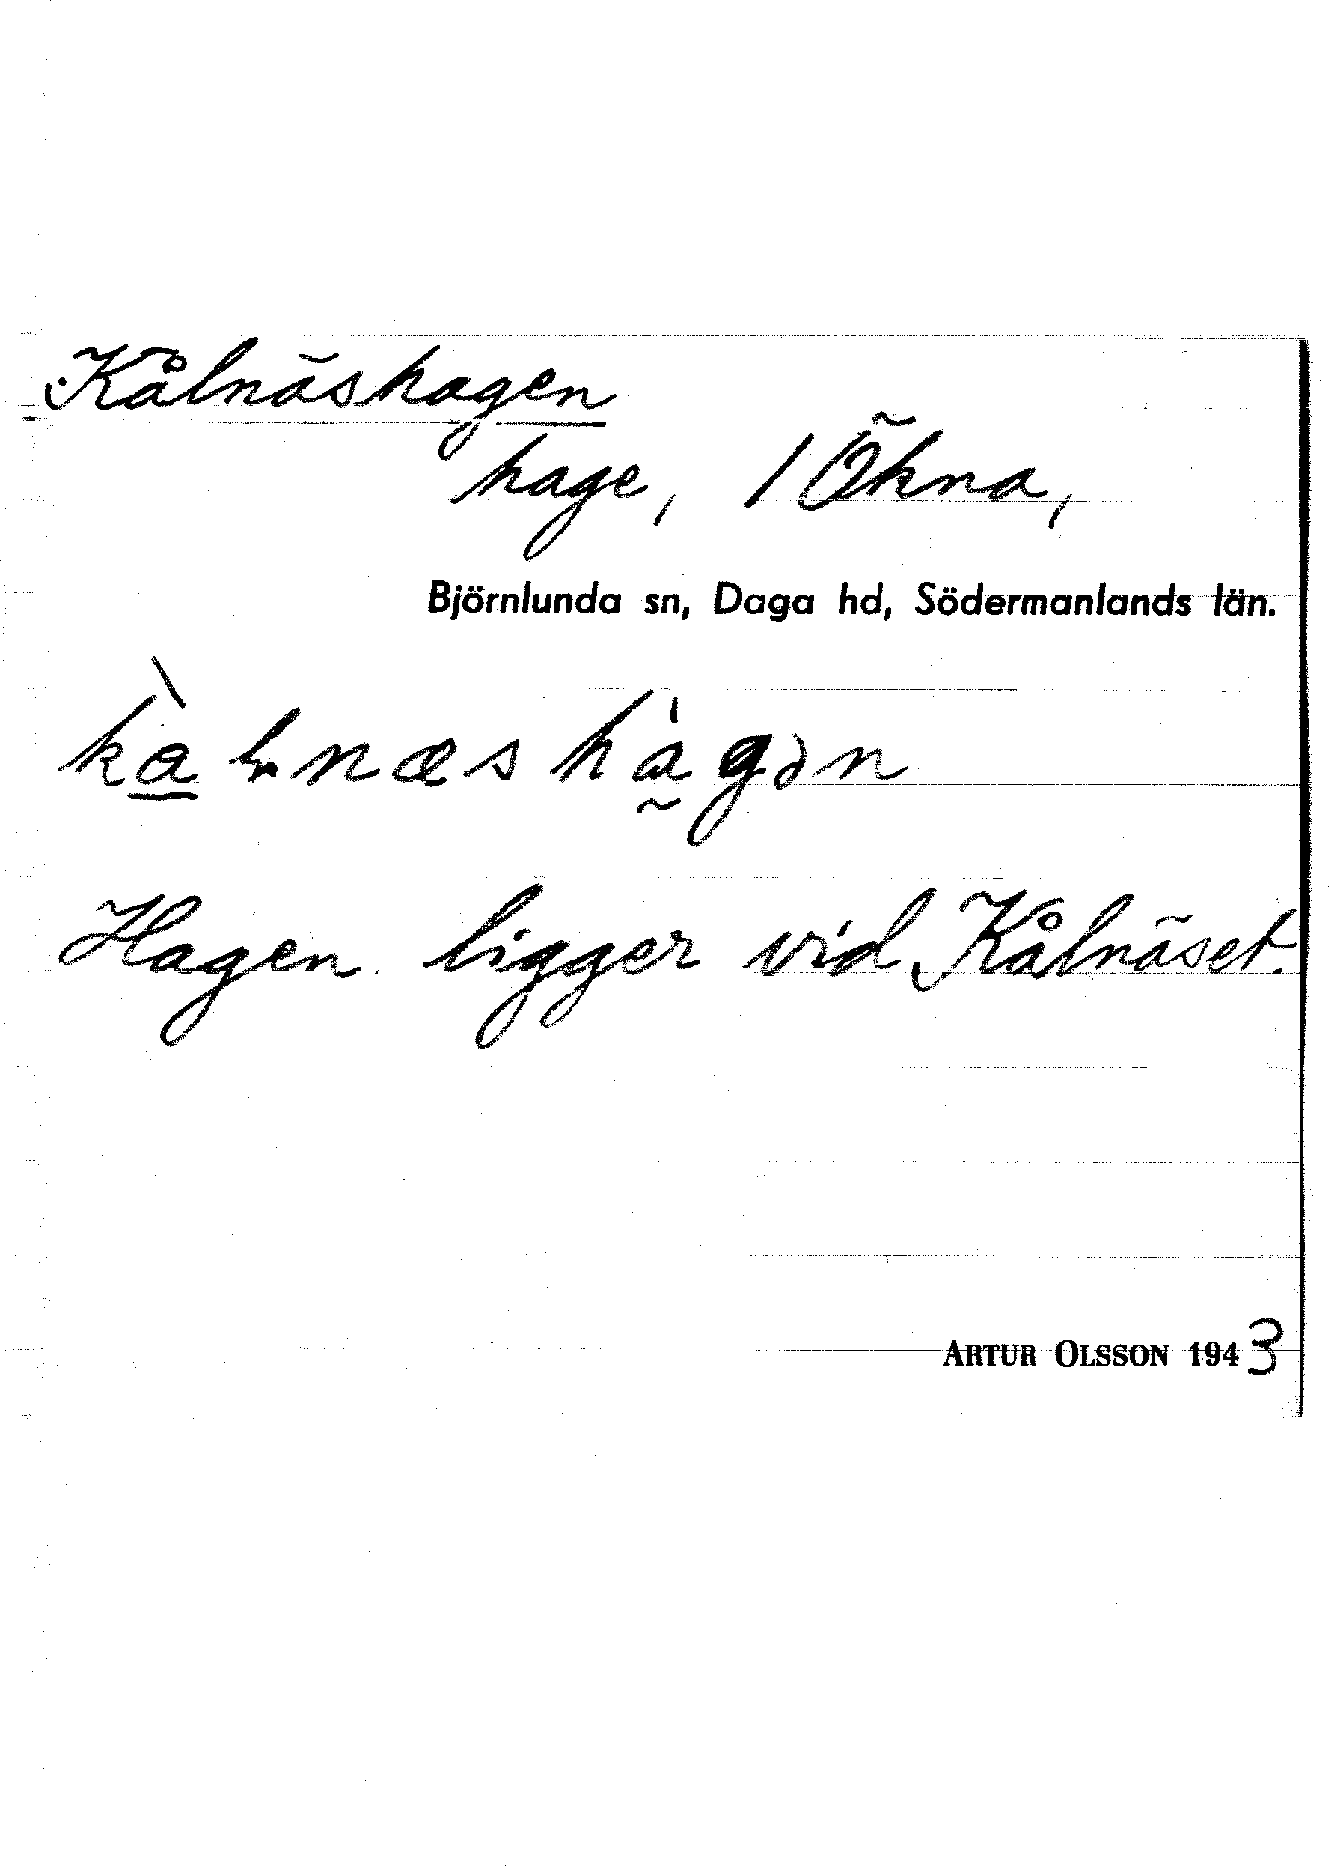 Kålnäshagen
hage, 1 Ökna,
Björnlunda sn, Daga hd, Södermanlands län.
Hagen ligger vid Kålnäset.
ARTUR OLSSON 1943